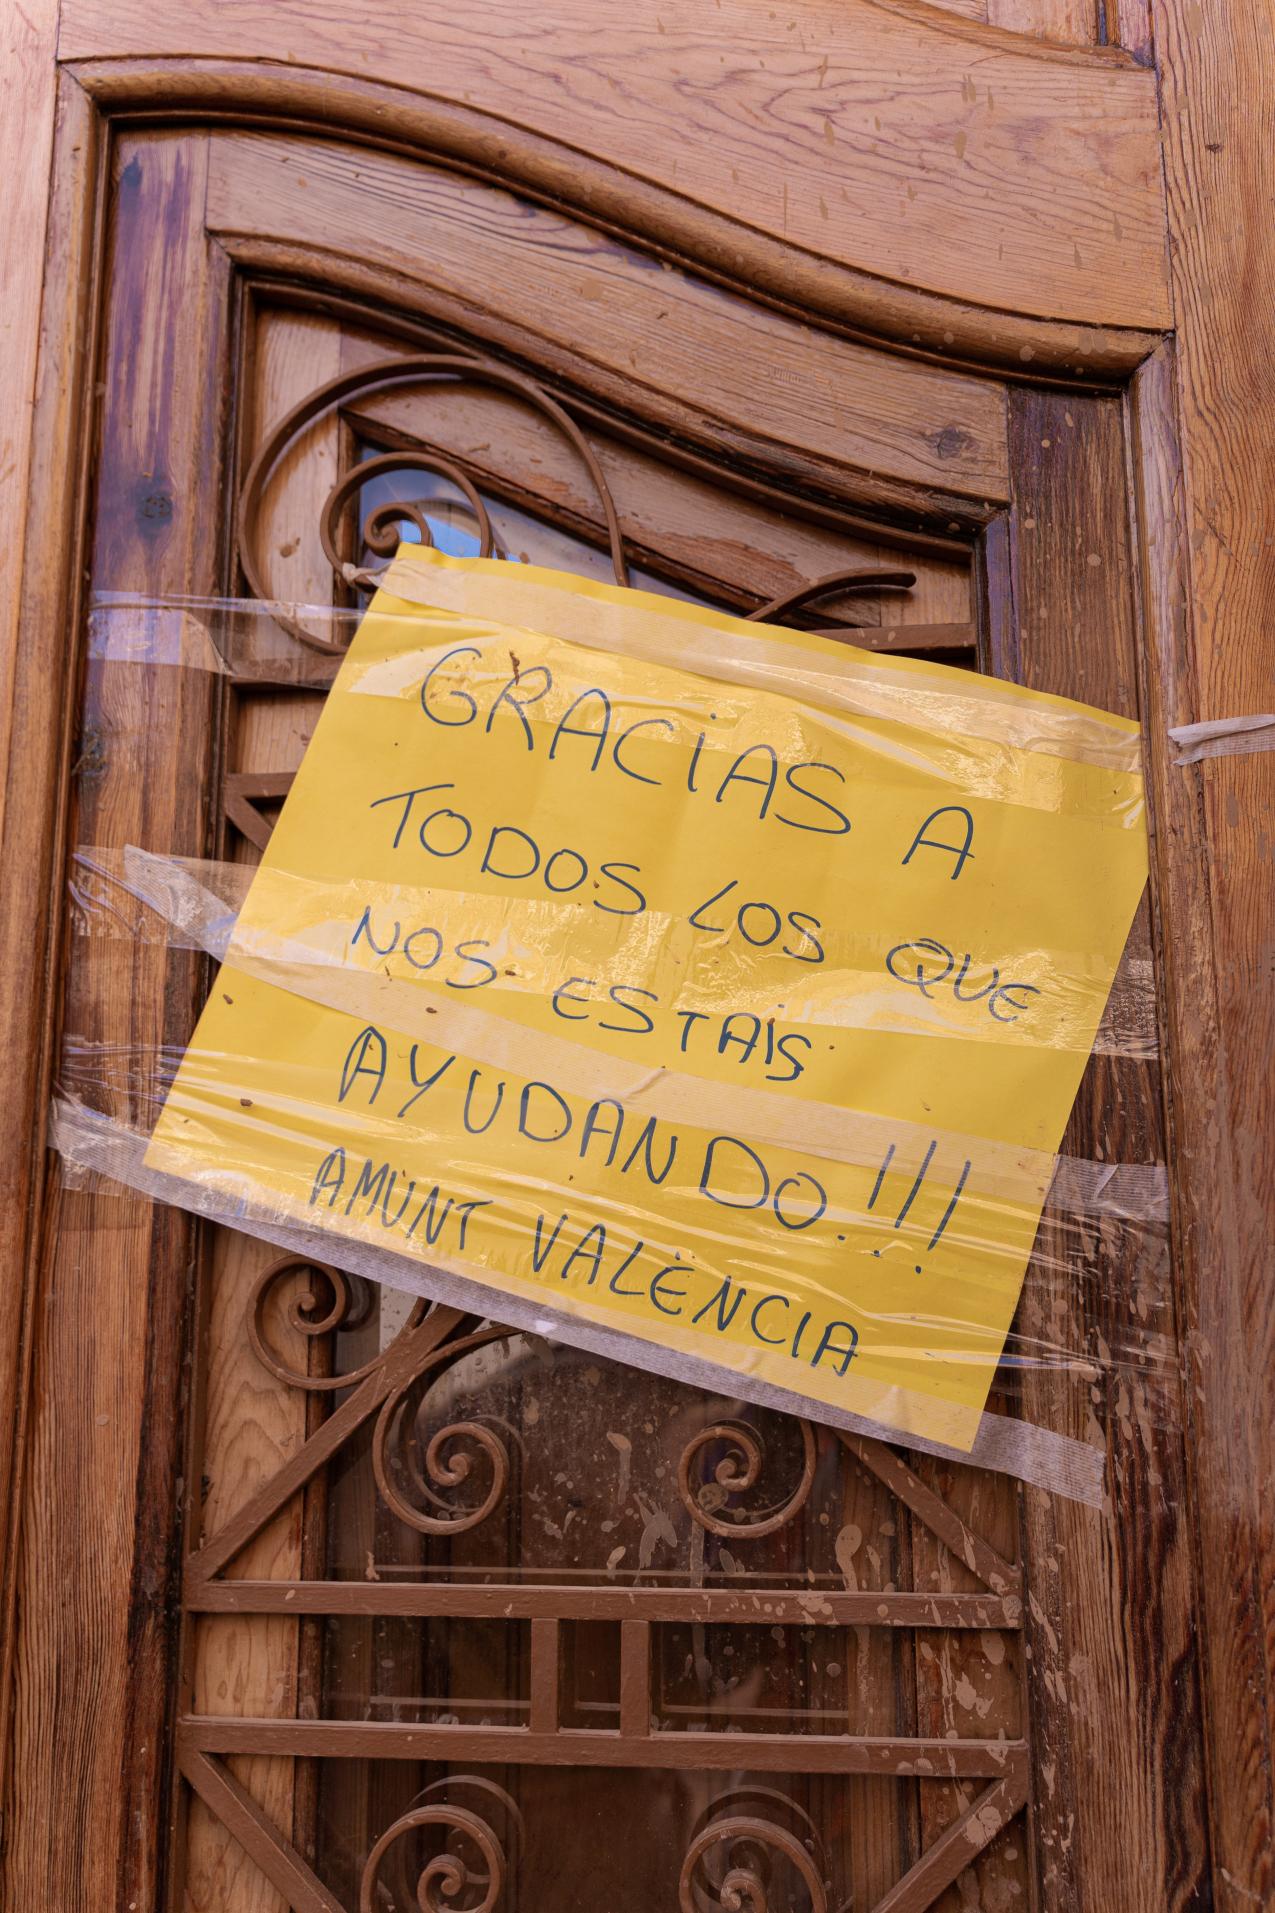 GRACiAS A
TODOS LOS QUE
NOS ESTAİS
AYUDANDO!!!
AMUNT VALÈNCIA